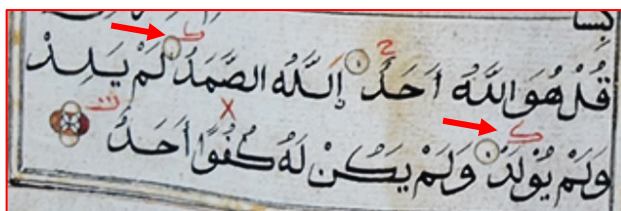 قُلْ هُوَ اللَّهُ اَحَدٌ اِللَّهُ الصَّمَدُ لَمْ يَلِدْ
وَلَمْ يُوْلَدْ وَلَمْ يَكُنْ لَهُ كُفُوًا أَحَدٌ